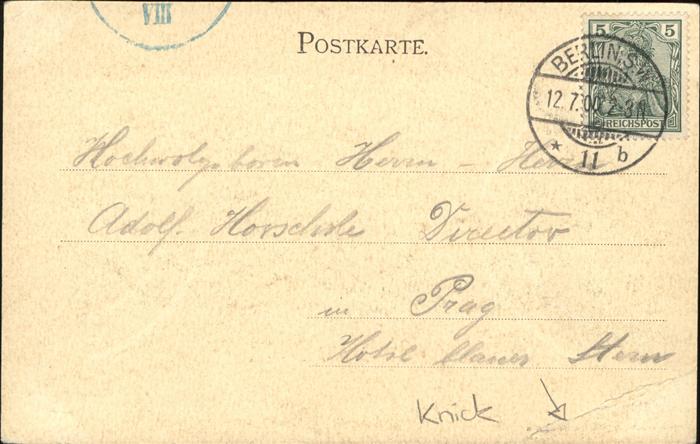 VIII
POSTKARTE.
5 5
BERLIN, S.W.
12.7.00. 2-3N.
REICHSPOST
* 11 b
Hochwolgeboren Herrn - Herrn
Adolf Director
in Prag
Hotel blauer Stern
Knick